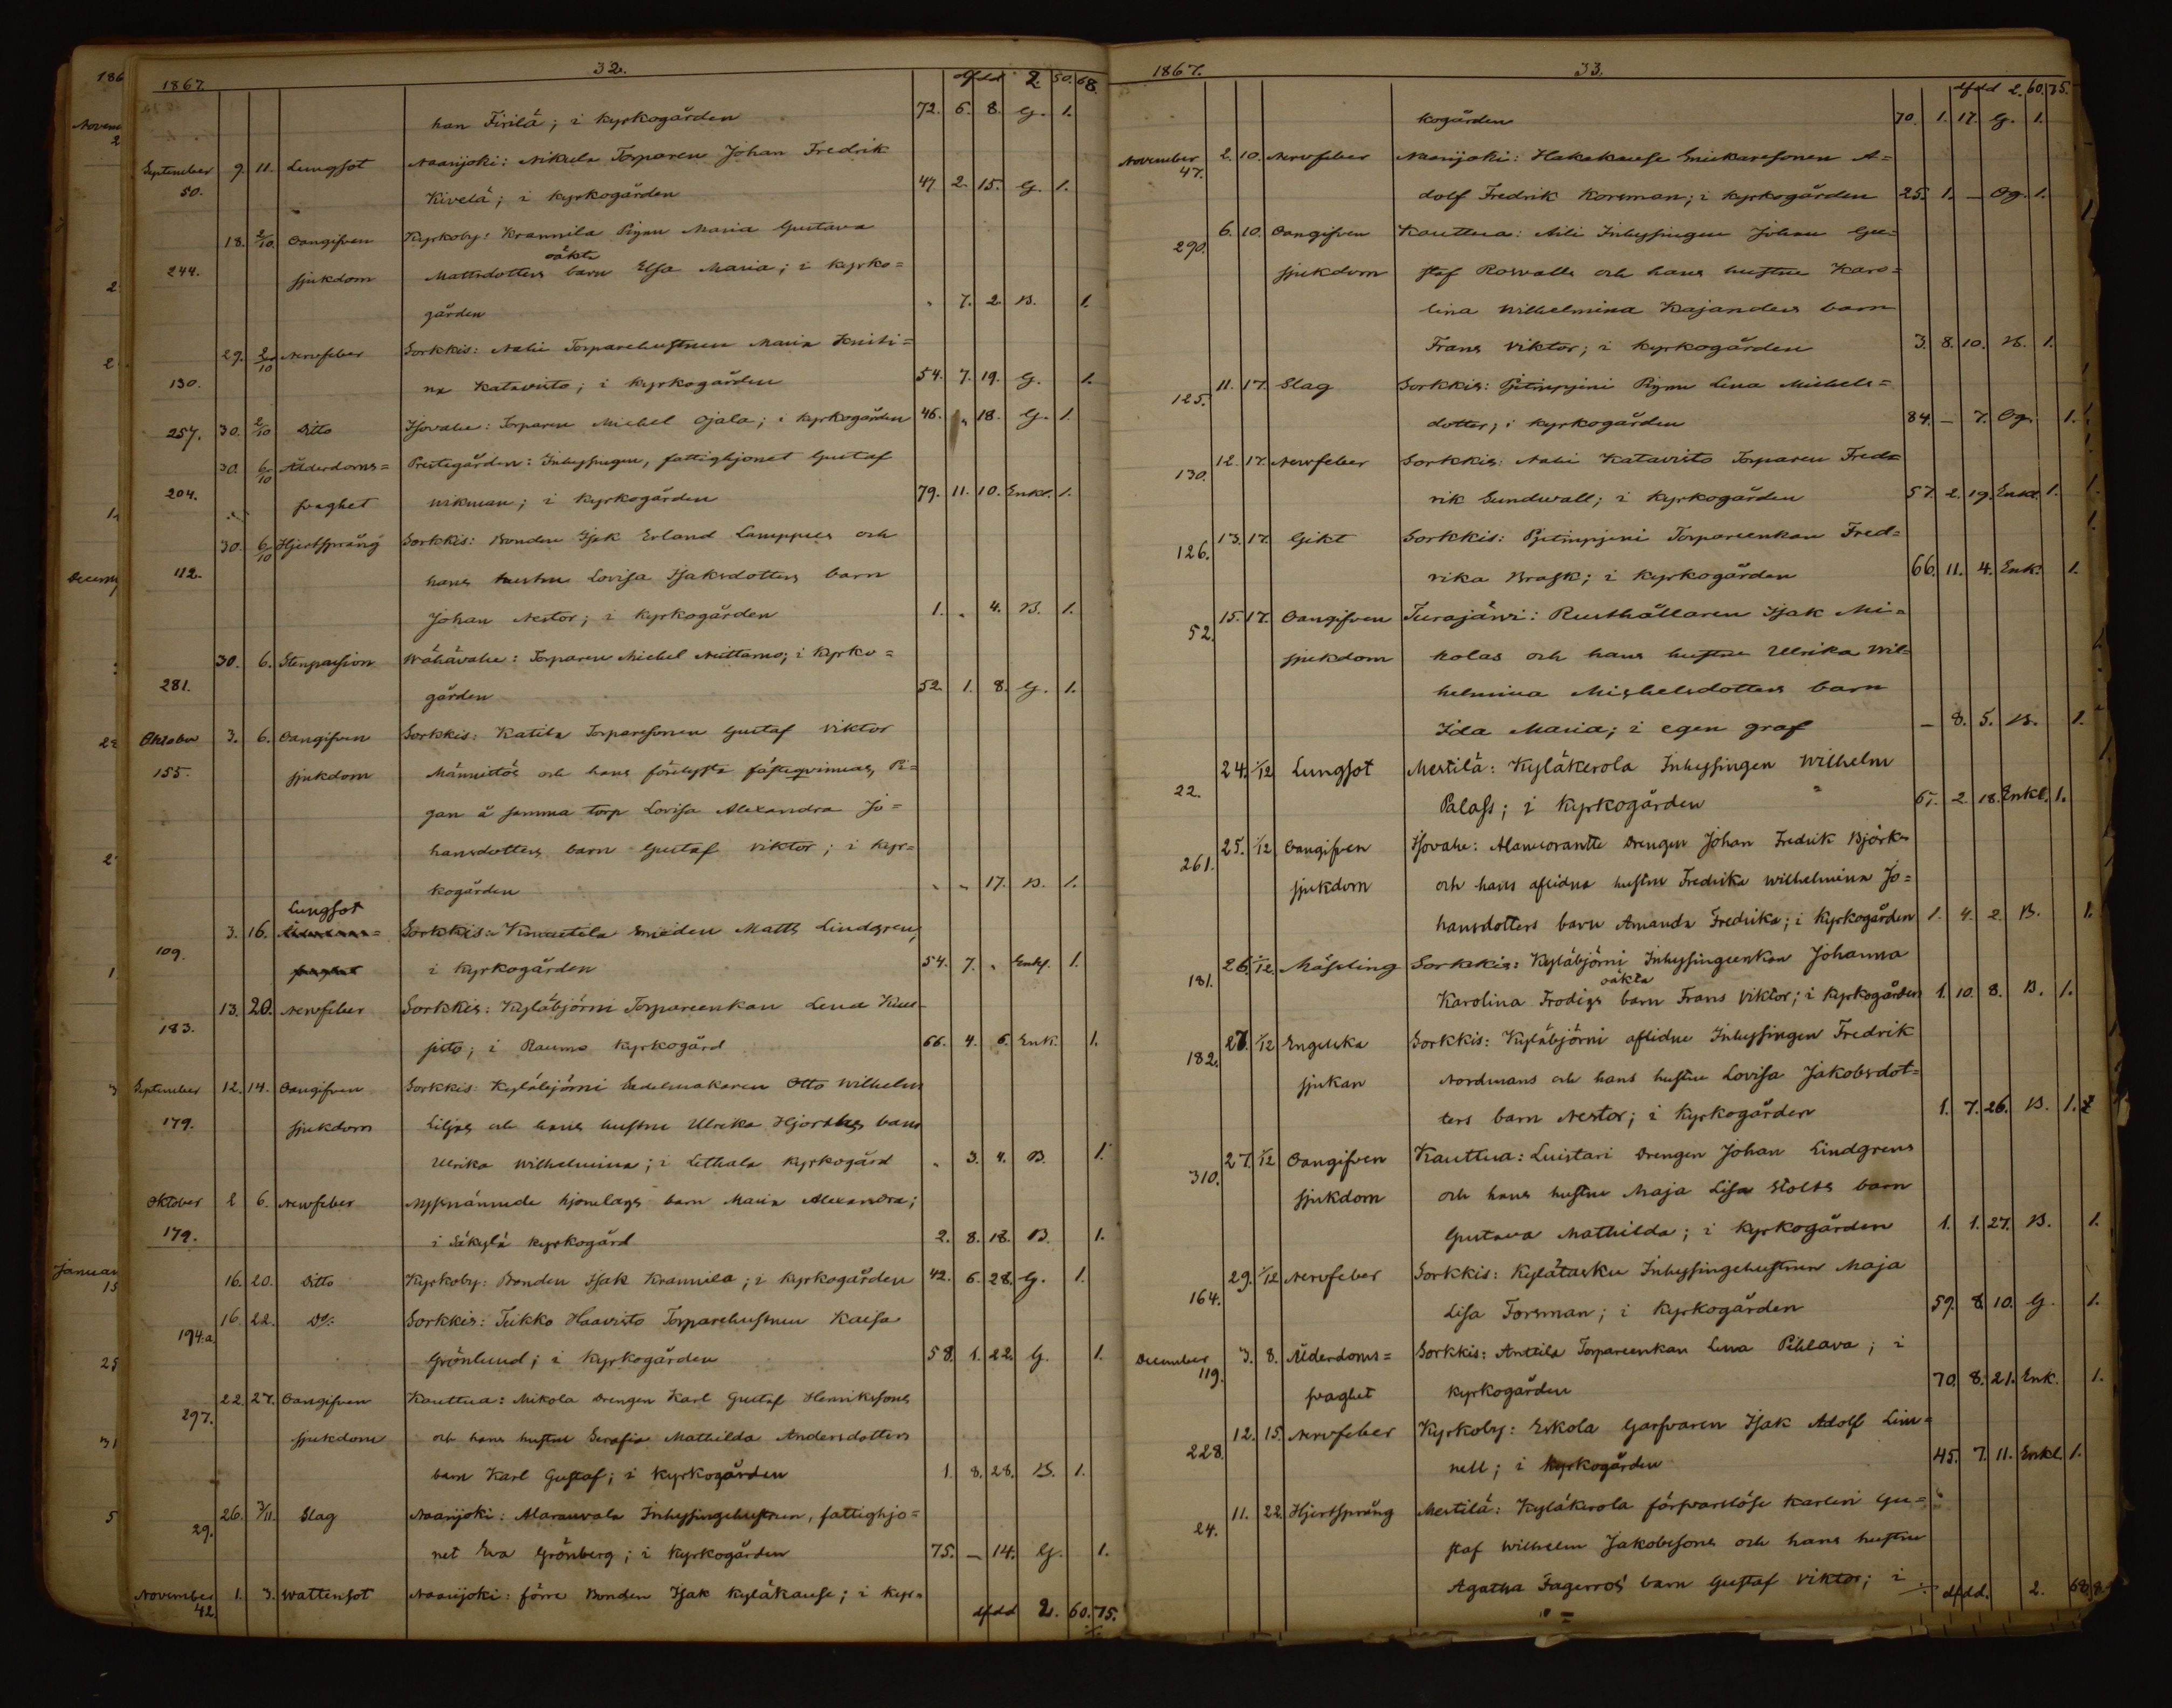 1867. 32. dfdd 2. 50. 68.
han Firilä; i kyrkogården 72. 6. 8. G. 1.
September 9. 11. Lungsot Naarijoki: Nikula Torparen Johan Fredrik
50. Kivelä; i kyrkogården 47 2. 15. G. 1.
18. 2/10. Oangifven Kyrkoby: Krannila Pigan Maria Gustava
oäkta
244. sjukdom Mattsdotters barn Elsa Maria; i kyrko=
gården " 7. 2. B. 1.
29. 2/10 Nervfeber Sorkkis: Torparehustrun Maria Kristi=
130. na Katavisto; i kyrkogården 54. 7. 19. G. 1.
257. 30. 2/10 Ditto Isovahe: Torparen Michel Ojala; i kyrkogården 46. " 18. G. 1.
30. 6/10 Ålderdoms= Prestegården: Inhysingen, fattighjonet Gustaf
204. svaghet Wikman; i kyrkogården 79. 11. 10. Enkl. 1.
30. 6/10 Hjertsprång Sorkkis: Bonden Isak Erland Lamppus och
112. hans hustru Lovisa Isaksdotters barn
Johan Nestor; i kyrkogården 1. " 4. B. 1.
30. 6. Stenpassion Wähävahe: Torparen Michel Niittamo; i kyrko=
281. gården 52. 1. 8. G. 1.
Oktober 3. 6. Oangifven Sorkkis: Katila Torparesonen Gustaf Viktor
155. sjukdom Männistös och hans förelysta fästeqvinnas, Pi=
gan å samma torp Lovisa Alexandra Jo=
hansdotters barn Gustaf Viktor; i kyr=
kogården " " 17. B. 1.
Lungsot
3. 16. Sorkkis: Knaapila Smeden Matts Lindgren,
109. i kyrkogården 54. 7. " Enkl. 1.
13. 20. Nervfeber Sorkkis: Kyläbjörni Torpareenkan Lena Kuu-
183. sisto; i Raumo kyrkogård 66. 4. 6. Enk. 1.
September 12. 14. Oangifven Sorkkis: Kyläbjörni Sadelmakaren Otto Wilhelm
179. sjukdom Liljas och hans hustru Ulrika Hjorths barn
Ulrika Wilhelmina; i Letala kyrkogård " 3. 4. B. 1.
Oktober 2 6. Nervfeber Nyssnämnde hjonelags barn Maria Alexandra;
179. i Säkylä kyrkogård 2. 8. 18. B. 1.
16. 20. Ditto Kyrkoby: Bonden Isak Krannila; i kyrkogården 42. 6. 28. G. 1.
16. 22. Do. Sorkkis: Teikko Haavisto Torparehustrun Kaisa
194.a Grönlund; i kyrkogården 58. 1. 22. G. 1.
22. 27. Oangifven Kauttua: Mikola Drengen Karl Gustaf Henrikssons
297. sjukdom och hans hustru Serafia Mathilda Andersdotters
barn Karl Gustaf; i kyrkogården 1. 8. 28. B. 1.
26. 3/11 Slag Naarijoki: Inhysingehustrun, fattighjo=
29. net Eva Grönberg; i kyrkogården 75. — 14. G. 1.
November 1. 3. Wattensot Naarijoki: förre Bonden Isak Kyläkause; i kyr=
42. dfdd 2. 60. 75.
1867. 33. dfdd 2. 60. 75.
kogården 70. 1. 17. G. 1.
November 2. 10. Nervfeber Naarijoki: Hakakause Snickaresonen A=
47. dolf Fredrik Korsman; i kyrkogården 25. 1. — Og. 1.
6. 10. Oangifven Kauttua: Inhysingen Johan Gu=
290. sjukdom staf Rosvalls och hans hustru Karo=
lina Wilhelmina Kajanders barn
Frans Viktor; i kyrkogården 3. 8. 10. B. 1.
11. 17. Slag Sorkkis: Pigan Lena Michels=
125. dotter; i kyrkogården 84. — 7. Og. 1.
12. 17. Nervfeber Sorkkis: Katavisto Torparen Fred=
130. rik Sundwall; i kyrkogården 57. 2. 19. Enkl. 1.
13. 17. Gikt Sorkkis: Torpareenkan Fred=
126. rika Brask; i kyrkogården 66. 11. 4. Enk. 1.
15. 17. Oangifven Turajärvi: Rusthållaren Isak Mi=
52. sjukdom kolas och hans hustru Ulrika Wil=
helmina Michelsdotters barn
Ida Maria; i egen graf — 8. 5. B. 1.
24. 1/12 Lungsot Mestilä: Kyläkerola Inhysingen Wilhelm
22. Palass; i kyrkogården 65. 2. 18. Enkl. 1.
25. 1/12 Oangifven Isovahe: Drengen Johan Fredrik Björks
261. sjukdom och hans aflidna hustru Fredrika Wilhelmina Jo=
hansdotters barn Amanda Fredrika; i kyrkogården 1. 4. 2. B. 1.
26. 1/12. Mässling Sorkkis: Kyläbjörni Inhysingeenkan Johanna
oäkta
181. Karolina Frodigs barn Frans Viktor; i kyrkogården 1. 10. 8. B. 1.
27. 1/12 Engelska Sorkkis: Kyläbjörni aflidne Inhysingen Fredrik
182. sjukan Nordmans och hans hustru Lovisa Jakobsdot=
ters barn Nestor; i kyrkogården 1. 7. 26. B. 1.
27. 1/12 Oangifven Kauttua: Luistari Drengen Johan Lindgrens
310. sjukdom och hans hustru Maja Lisa Stolts barn
Gustava Mathilda; i kyrkogården 1. 1. 27. B. 1.
29. 1/12 Nervfeber Sorkkis: Kylätasku Inhysingehustrun Maja
164. Lisa Forsman; i kyrkogården 59. 8. 10. G. 1.
December 3. 8. Ålderdoms= Sorkkis: Anttila Torpareenkan Lena Pihlava; i
119. svaghet kyrkogården 70. 8. 21. Enk. 1.
12. 15. Nervfeber Kyrkoby: Eskola Garfvaren Isak Adolf Lin=
228. nell; i kyrkogården 45. 7. 11. Enkl. 1.
11. 22. Hjertsprång Mestilä: Kyläkerola försvarslöse Karlen Gu=
24. staf Wilhelm Jakobssons och hans hustru
Agatha Fagerros' barn Gustaf Viktor; i
dfdd. 2. 68.